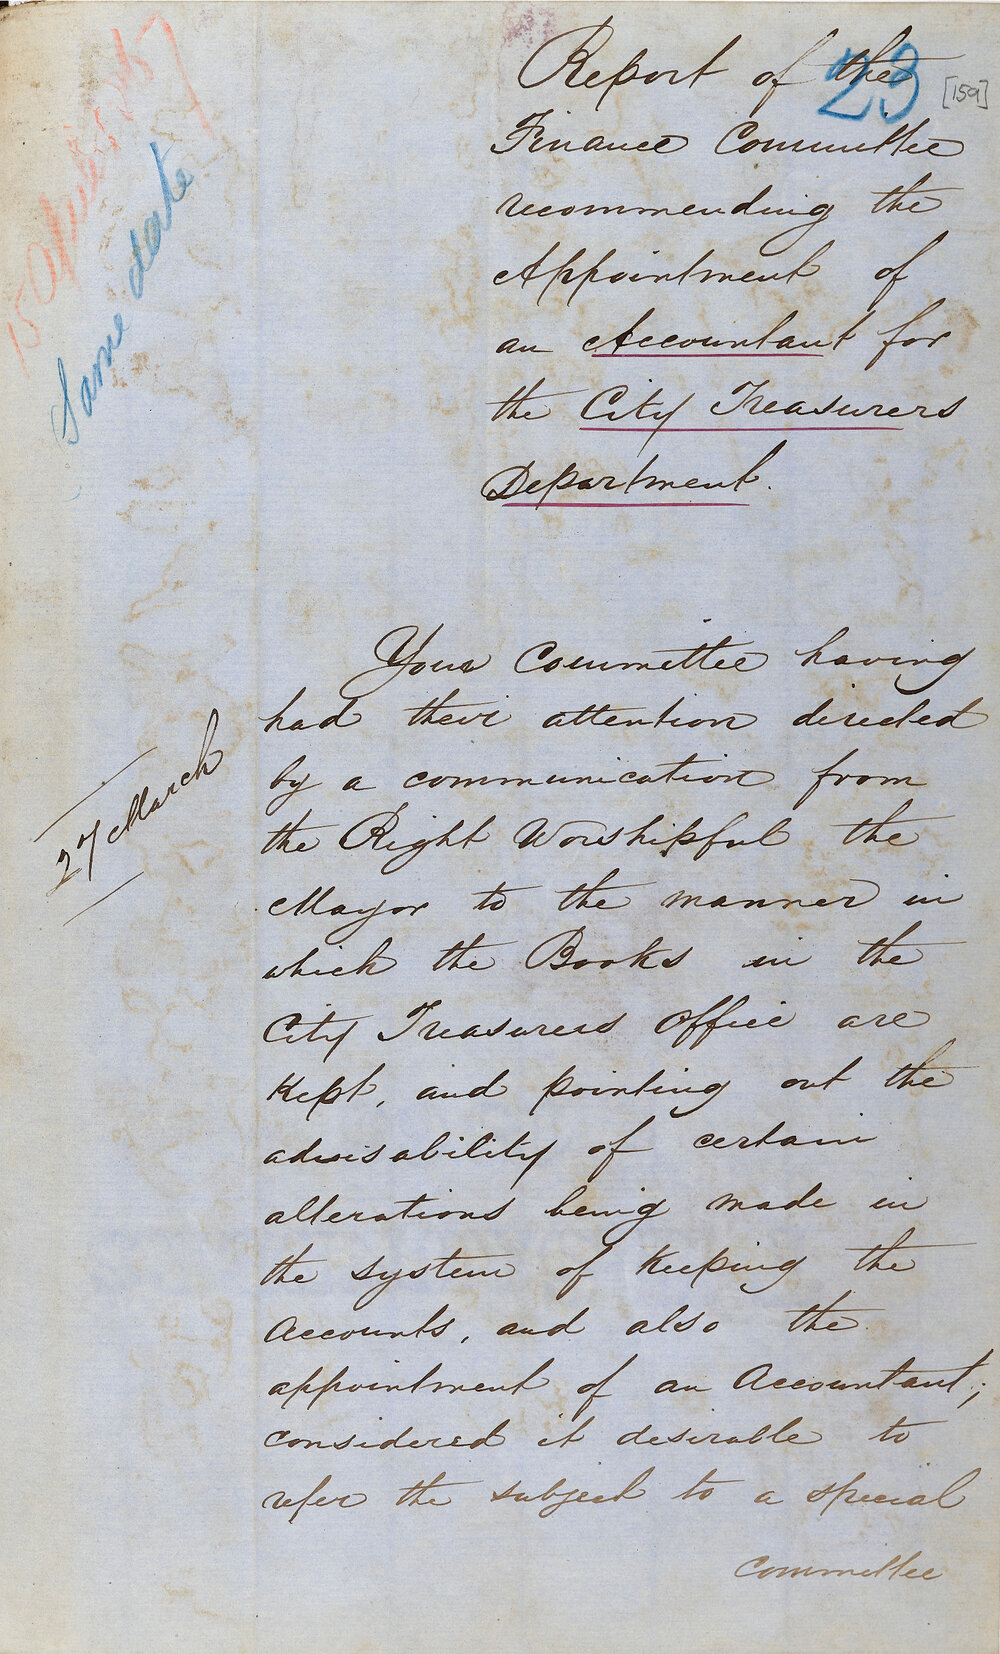 Report of the
23
[159]
Finance Committee
recommending the
Appointment of
an Accountant for
the City Treasurers
Department.
15 April
Same date
27 March
Your Committee having
had their attention directed
by a communication from
the Right Worshipful the
Mayor to the manner in
which the Books in the
City Treasurers Office are
Kept, and pointing out the
advisability of certain
alterations being made in
the system of Keeping the
Accounts, and also the
appointment of an Accountant;
considered it desirable to
refer the subject to a special
Committee